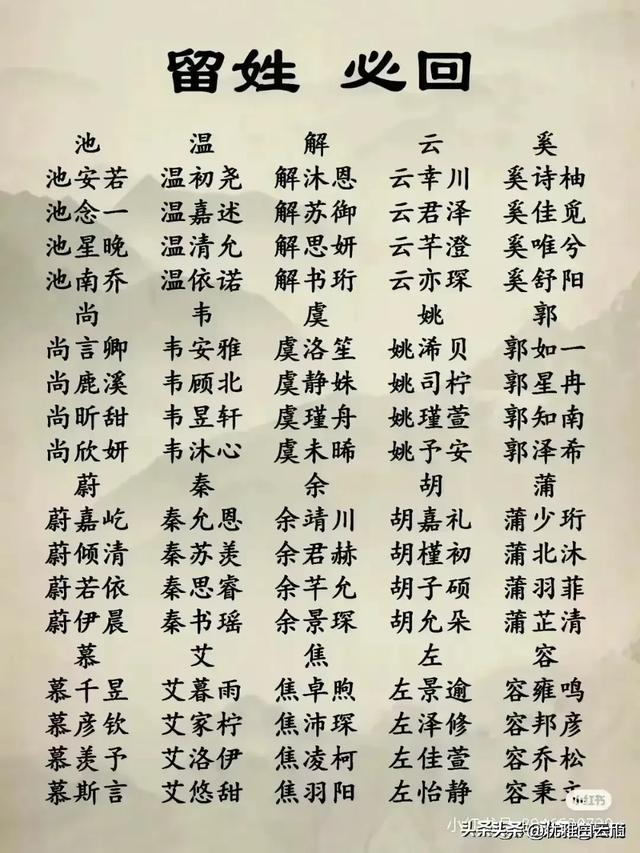 留姓 必回
池 温 解 云 奚
池安若 温初尧 解沐恩 云幸川 奚诗柚
池念一 温嘉述 解苏御 云君泽 奚佳觅
池星晚 温清允 解思妍 云芊澄 奚唯兮
池南乔 温依诺 解书珩 云亦琛 奚舒阳
尚 韦 虞 姚 郭
尚言卿 韦安雅 虞洛笙 姚浠贝 郭如一
尚鹿溪 韦顾北 虞静姝 姚司柠 郭星冉
尚昕甜 韦昱轩 虞瑾舟 姚瑾萱 郭知南
尚欣妍 韦沐心 虞未晞 姚予安 郭泽希
蔚 秦 余 胡 蒲
蔚嘉屹 秦允恩 余靖川 胡嘉礼 蒲少珩
蔚倾清 秦苏羡 余君赫 胡槿初 蒲北沐
蔚若依 秦思睿 余芊允 胡子硕 蒲羽菲
蔚伊晨 秦书瑶 余景琛 胡允朵 蒲芷清
慕 艾 焦 左 容
慕千昱 艾暮雨 焦卓煦 左景逾 容雍鸣
慕彦钦 艾家柠 焦沛琛 左泽修 容邦彦
慕羡予 艾洛伊 焦凌柯 左佳萱 容乔松
慕斯言 艾悠甜 焦羽阳 左怡静 容秉
小红书
头条 @优雅白云